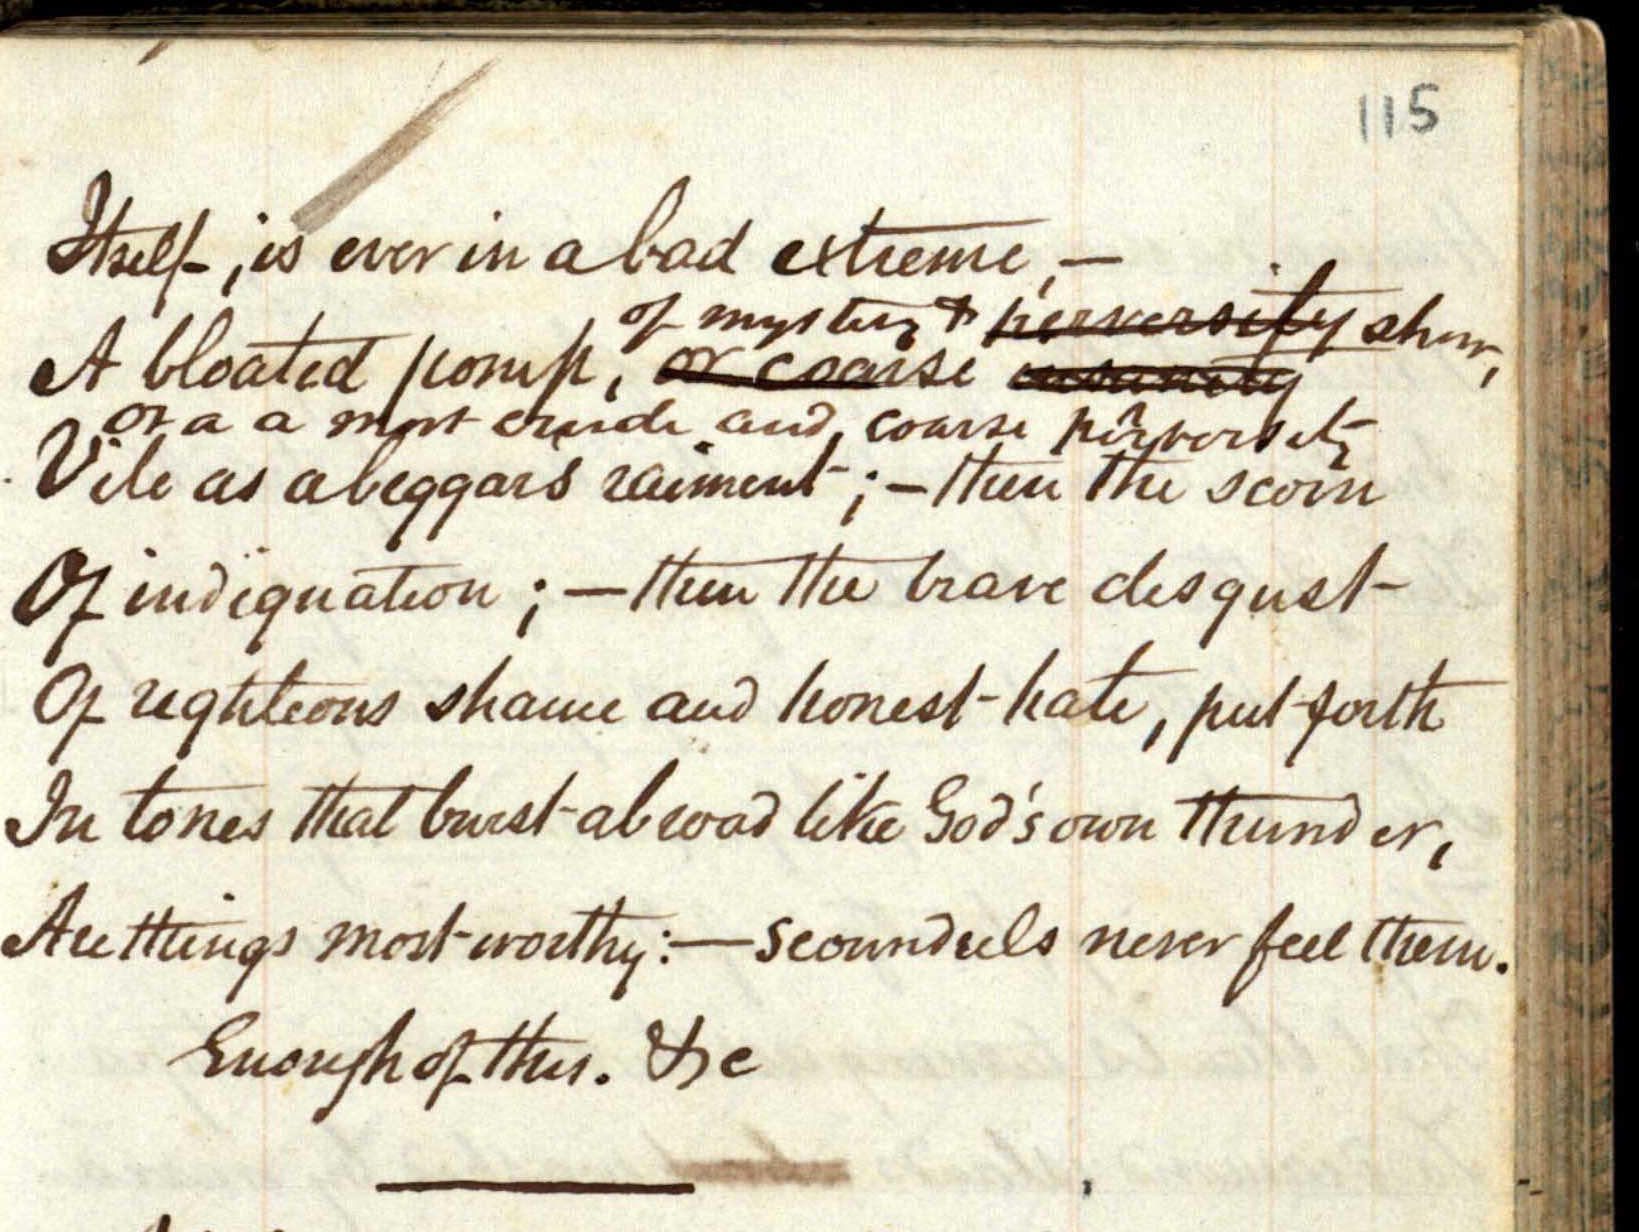 115
Itself, is ever in a bad extreme, —
of mystery & perversity show,
A bloated pomp, or coarse insanity
Or a a most crude and, coarse perversity
Vile as a beggar's raiment; — then the scorn
Of indignation; — then the brave disgust
Of righteous shame and honest hate, put forth
In tones that burst abroad like God's own thunder,
Are things most worthy: — scoundrels never feel them.
Enough of this. &c